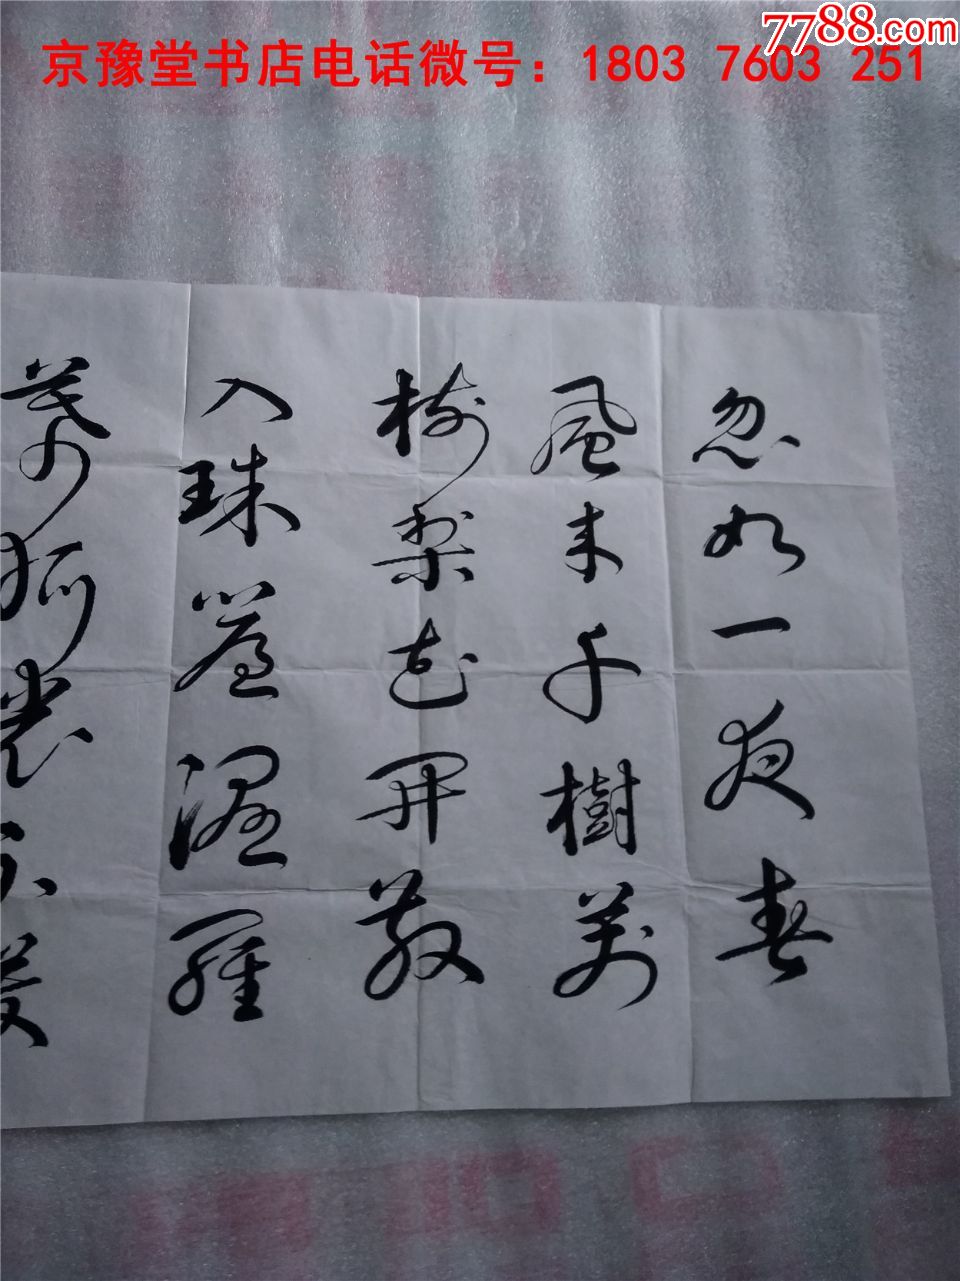 7788.com
京豫堂书店电话微号：1803 7603 251
忽如一夜春
風来千樹萬
樹梨花開散
入珠簾濕羅
幕狐裘不暖